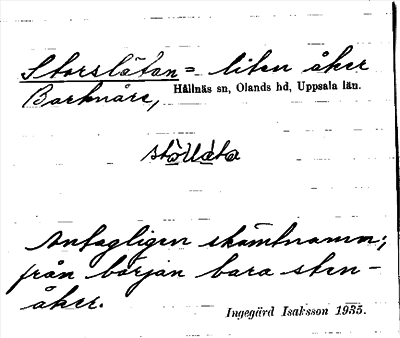 Storslåtan = liten åker
Barknåre, Hållnäs sn, Olands hd, Uppsala län.
stöllåta
Antagligen skämtnamn;
från början bara sten-
åker.
Ingegärd Isaksson 1935.